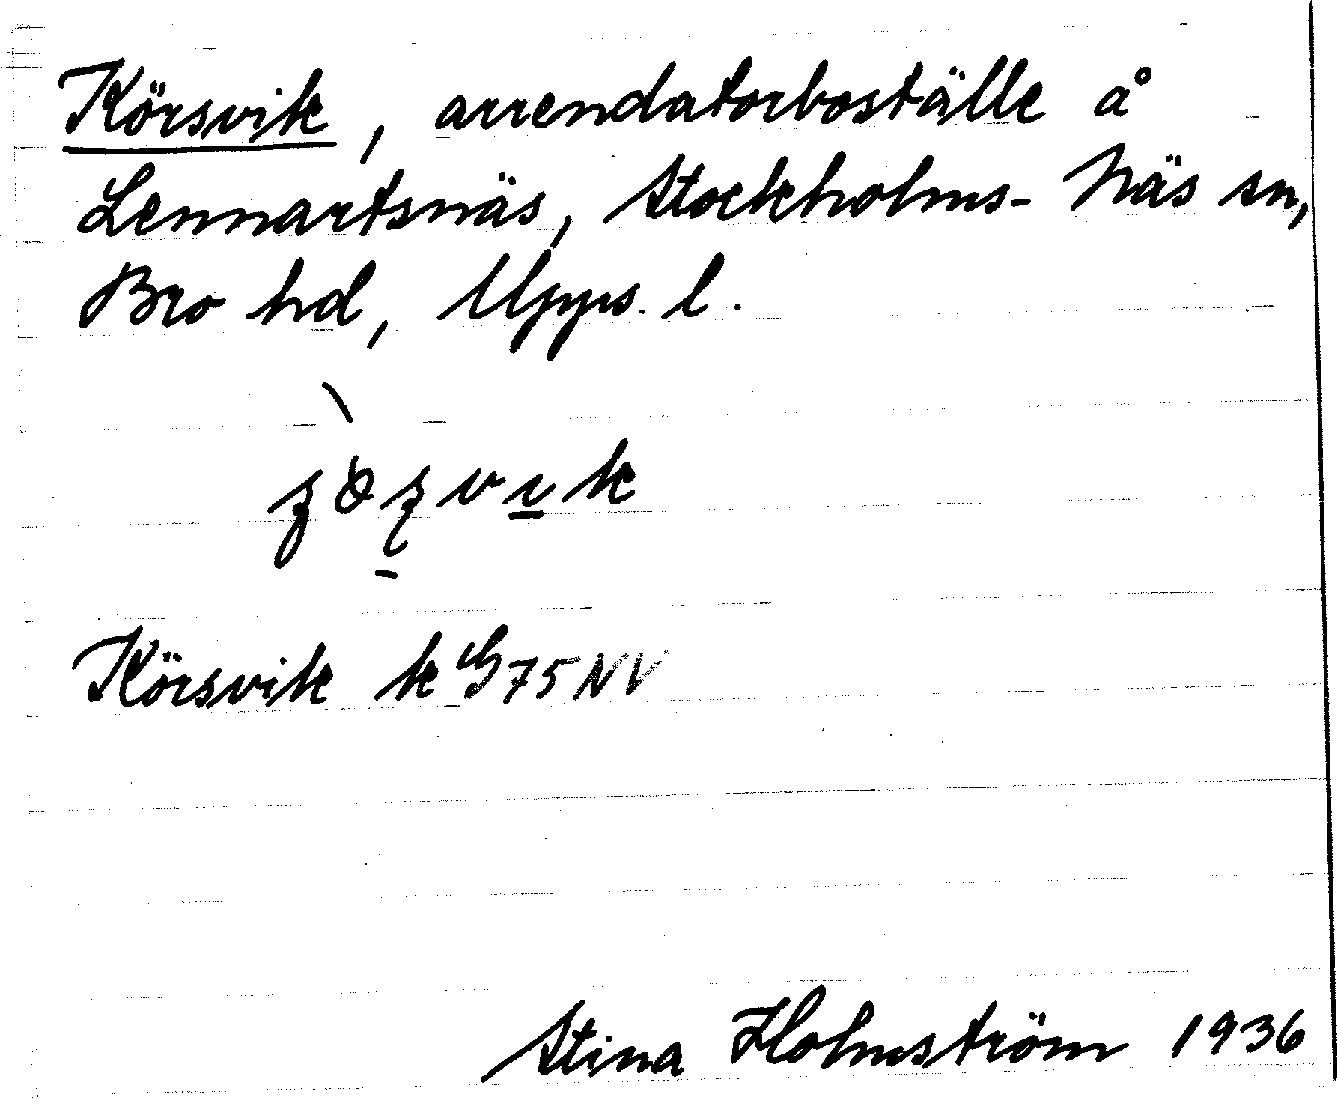 Körsvik, arrendatorboställe å
Lennartsnäs, Stockholms-Näs sn,
Bro hd, Upps. l.
Körsvik k G75NV
Stina Holmström 1936